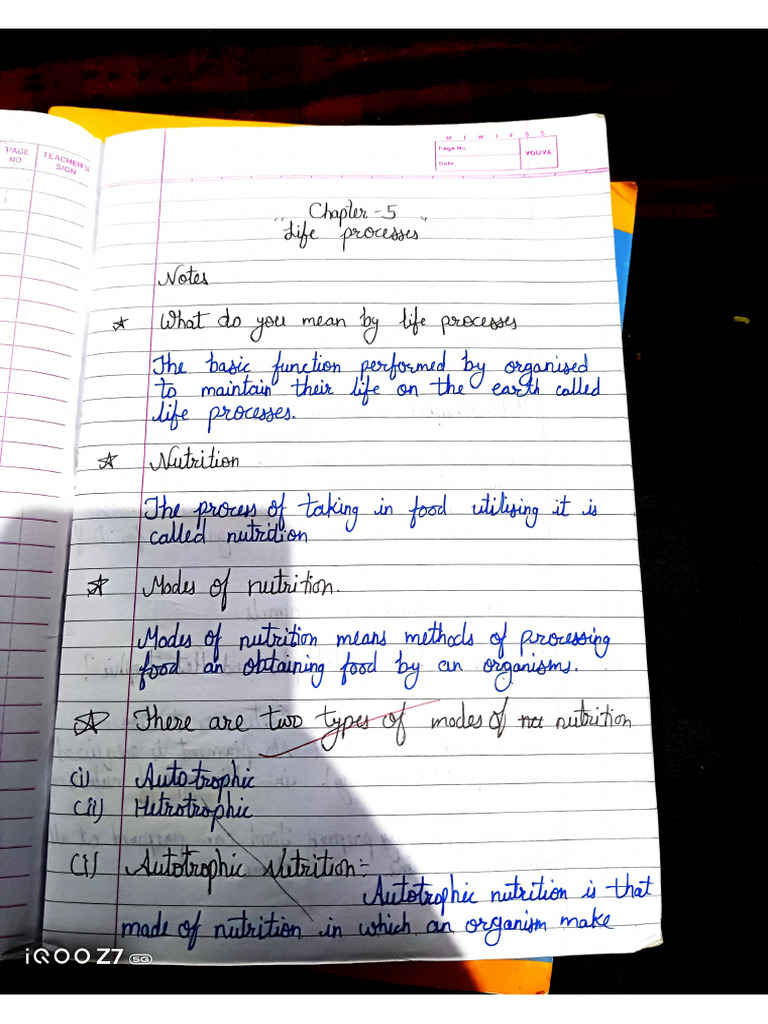 PAGE NO
TEACHER'S SIGN
M T W T F S S
Page No.
Date
YOUVA
Chapter-5
"Life processes"
Notes
☆ What do you mean by life processes
The basic function performed by organised
to maintain their life on the earth called
life processes.
☆ Nutrition
The process of taking in food utilising it is
called nutrition
☆ Modes of nutrition.
Modes of nutrition means methods of processing
food an obtaining food by an organisms.
☆ There are two types of modes of nutrition
(i) Autotrophic
(ii) Hetrotrophic
(i) Autotrophic Nutrition:-
Autotrophic nutrition is that
made of nutrition in which an organism make
iQOO Z7 5G